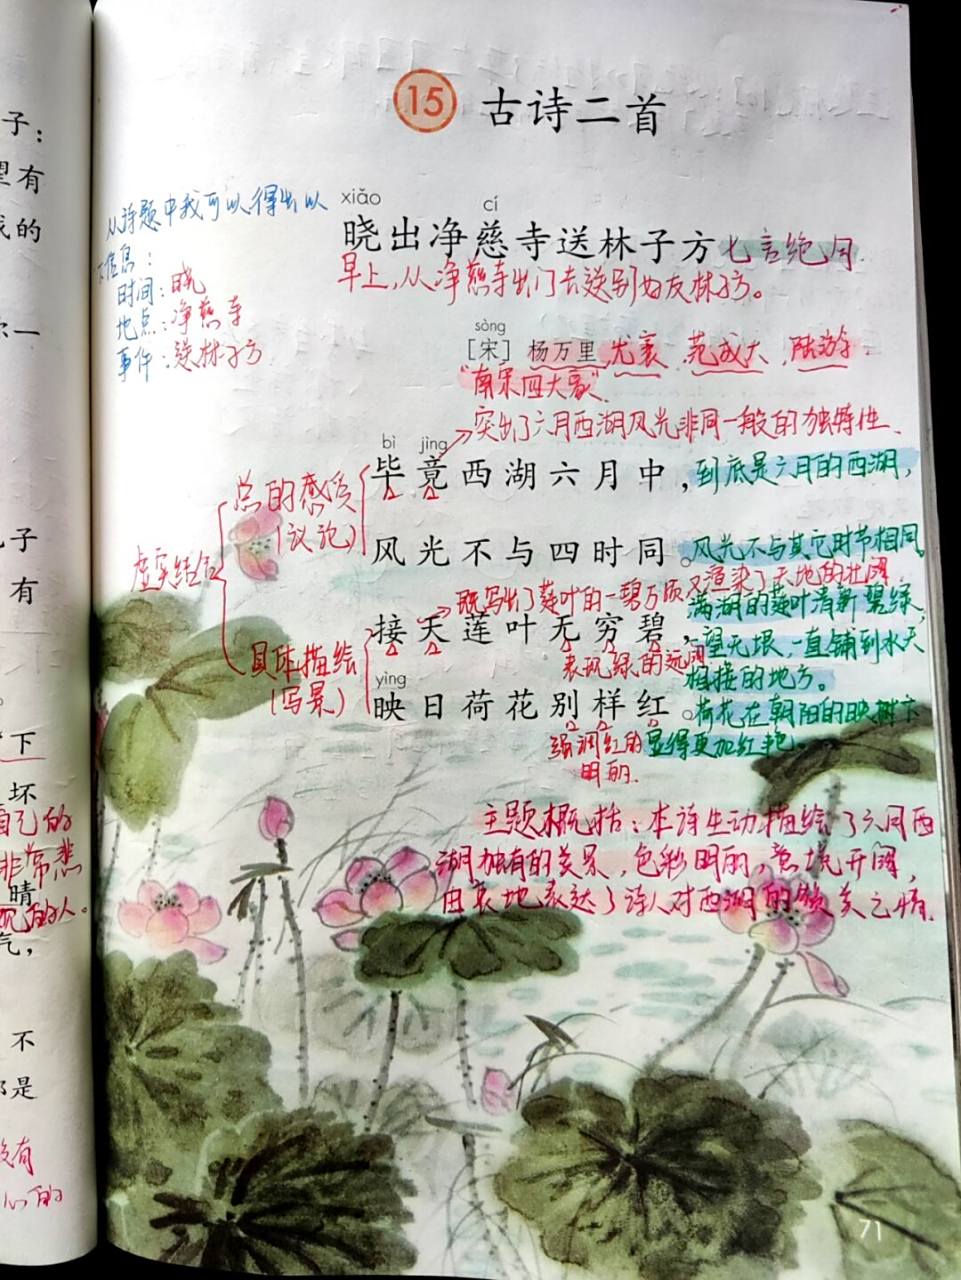 子：
望有
我的
你一
子
有
。
下
坏
自己的
非常悲
晴
观的人。
气，
不
都是
没有
心的
15 古诗二首
从诗题中我可以得出以
下信息：
时间：晓
地点：净慈寺
事件：送林子方
xiǎo cí
晓出净慈寺送林子方 七言绝句
早上，从净慈寺出门去送别好友林子方。
sòng
［宋］杨万里 尤袤 范成大 陆游
“南宋四大家”
突出了六月西湖风光非同一般的独特性、
bì jìng
毕竟西湖六月中，到底是六月的西湖，
总的感受
（议论）
风光不与四时同。风光不与其它时节相同。
虚实结合
既写出了莲叶的一碧万顷又渲染了天地的壮阔
接天莲叶无穷碧，满湖的莲叶清新碧绿，
一望无垠、一直铺到水天
相接的地方。
表现绿的远阔
具体描绘
（写景）
yìng
映日荷花别样红。荷花在朝阳的映衬下
显得更加红艳。
强调红的
明丽.
主题概括：本诗生动描绘了六月西
湖独有的美景，色彩明丽，意境开阔，
由衷地表达了诗人对西湖的赞美之情.
71